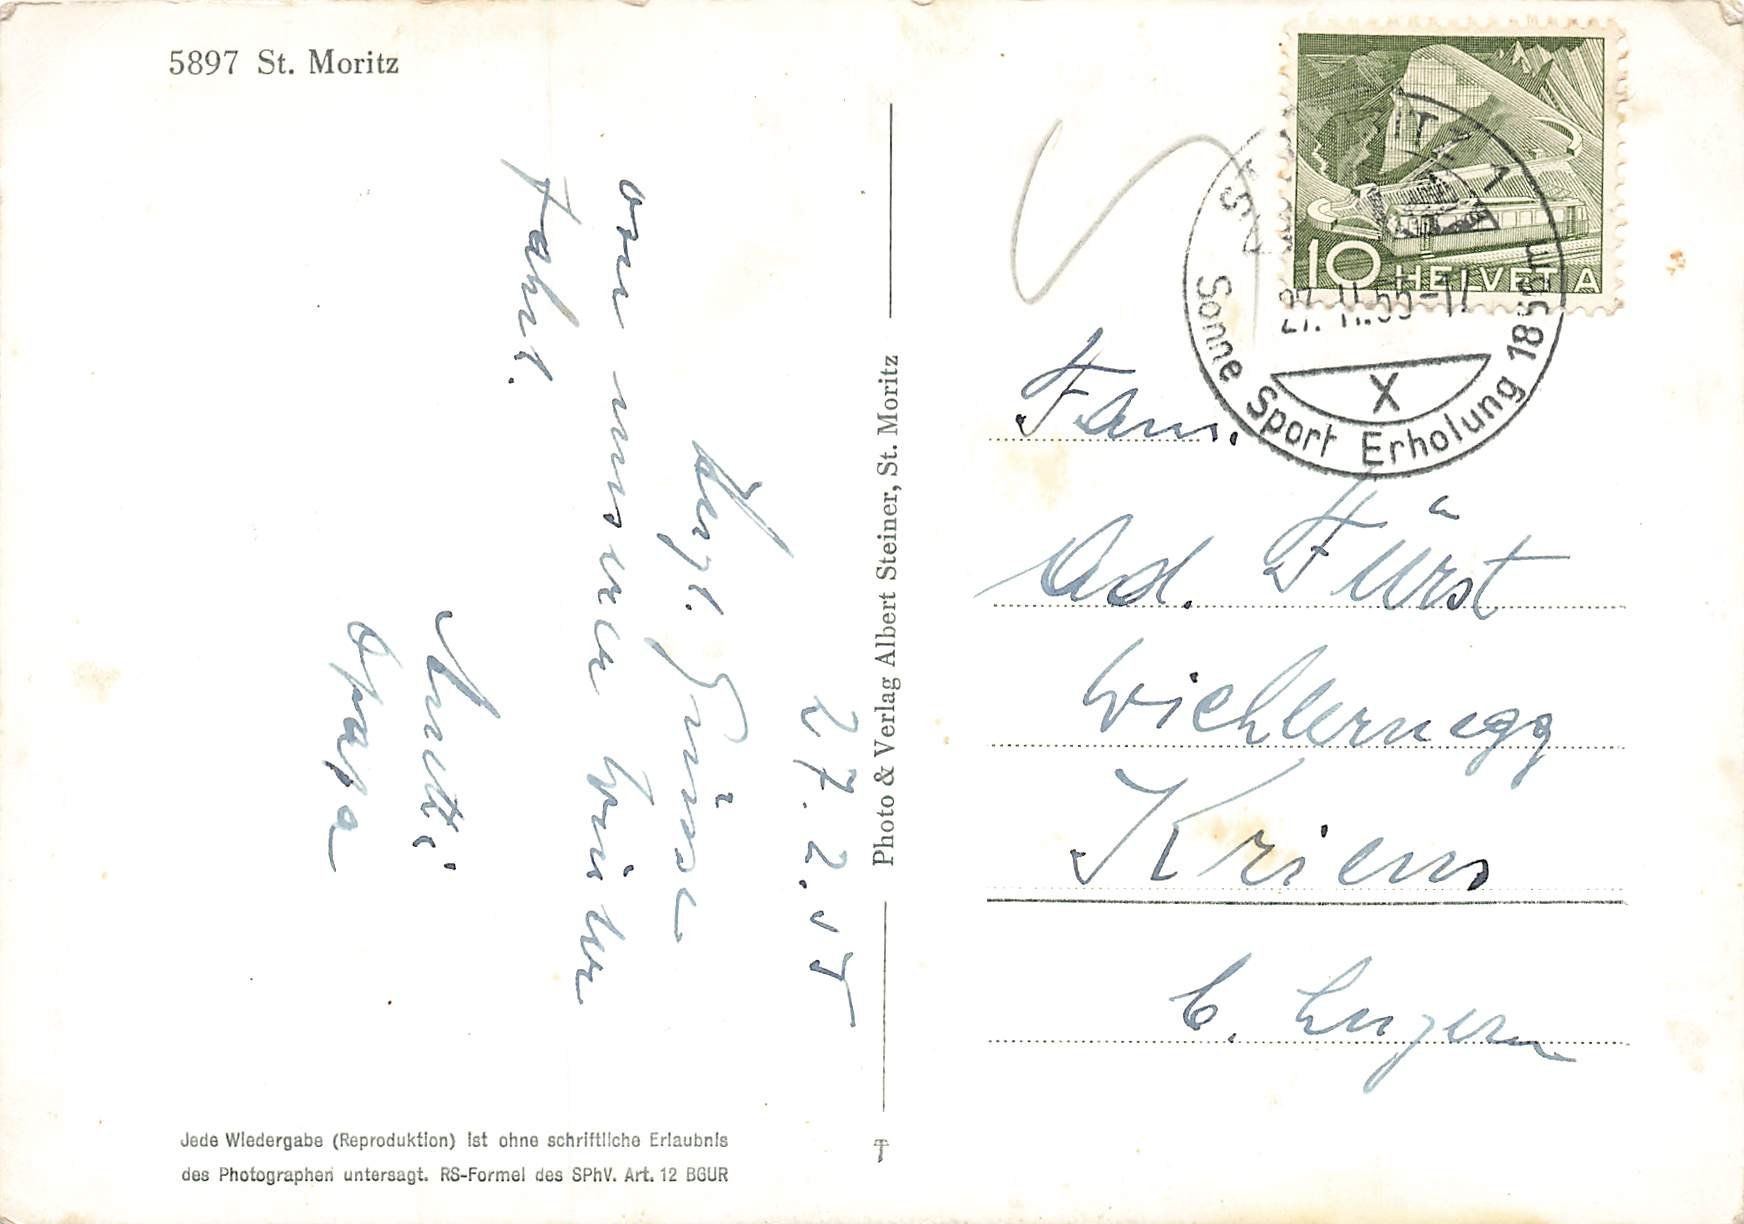 5897 St. Moritz
27. 2. 55
Herzl. Grüsse
von unserer Winter
fahrt.
Anetti
Opapa
Photo & Verlag Albert Steiner, St. Moritz
Jede Wiedergabe (Reproduktion) ist ohne schriftliche Erlaubnis
des Photographen untersagt. RS-Formel des SPhV. Art. 12 BGUR
10 HELVETIA
27. II. 55-11
Sonne Sport Erholung 1856 m
X
Fam.
Ad. Fürst
Wichlernegg
Kriens
b. Luzern